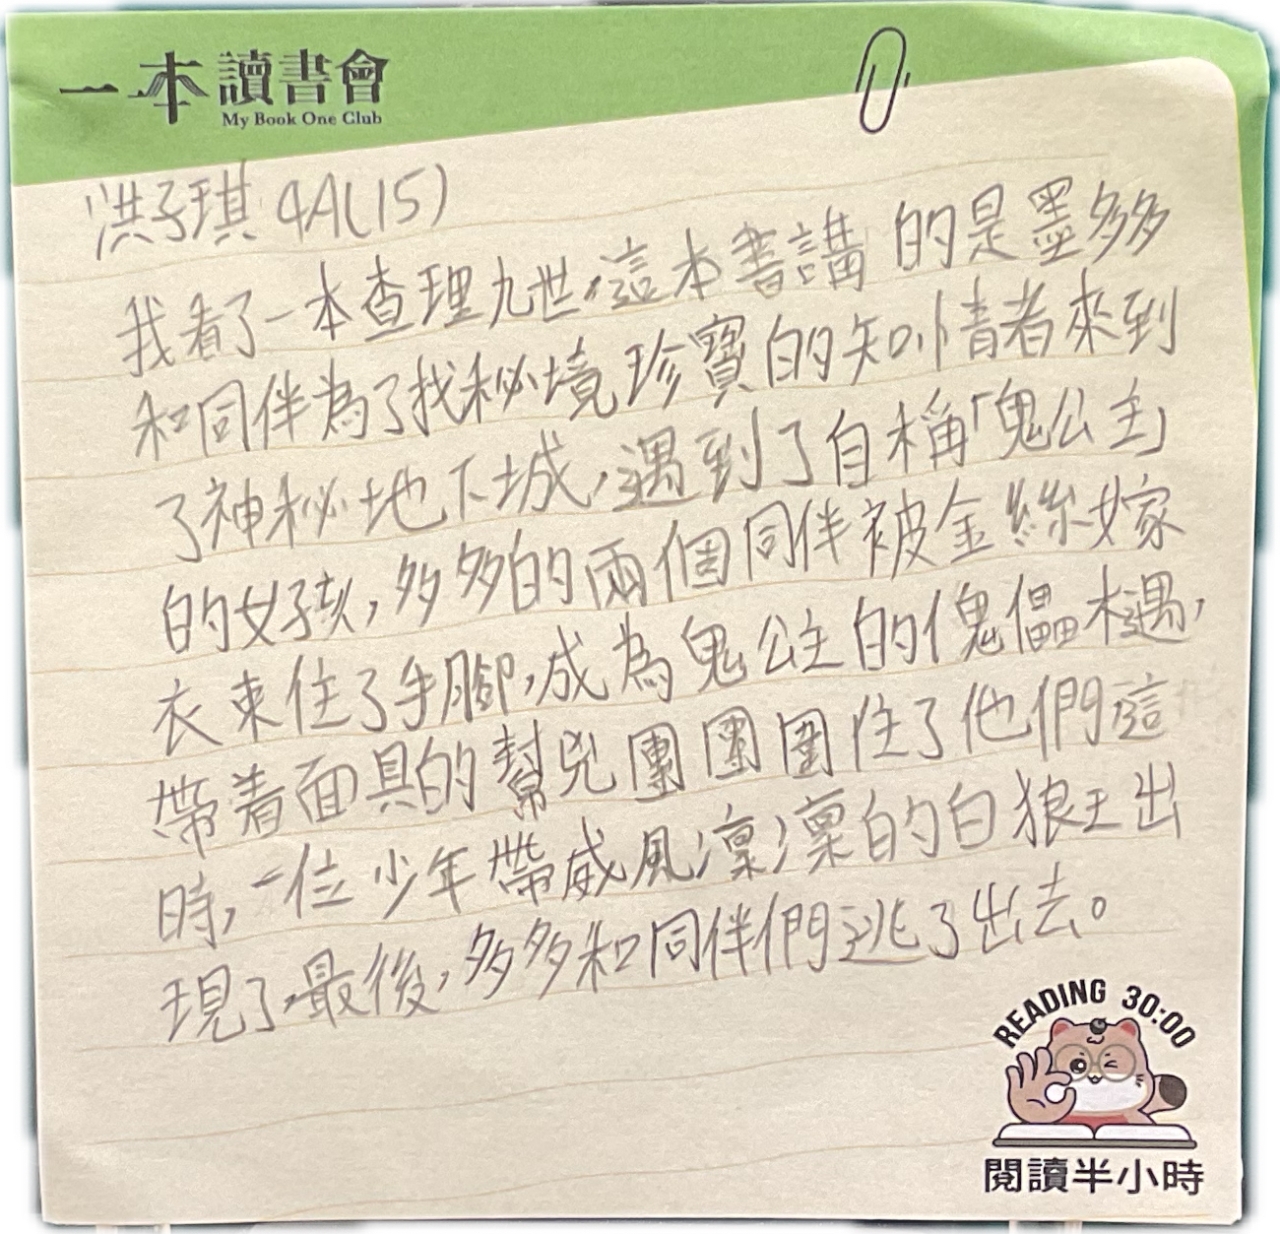 一本讀書會
My Book One Club
洪子琪 4A(15)
我看了一本查理九世,這本書講的是墨多多
和同伴為了找秘境珍寶的知情者來到
了神秘地下城,遇到了自稱「鬼公主」
的女孩,多多的兩個同伴被金絲嫁
衣束住了手腳,成為鬼公主的傀儡木遇,
帶着面具的幫兇團團圍住了他們這
時,一位少年帶威風凜凜的白狼王出
現了,最後,多多和同伴們逃了出去。
READING 30:00
閱讀半小時